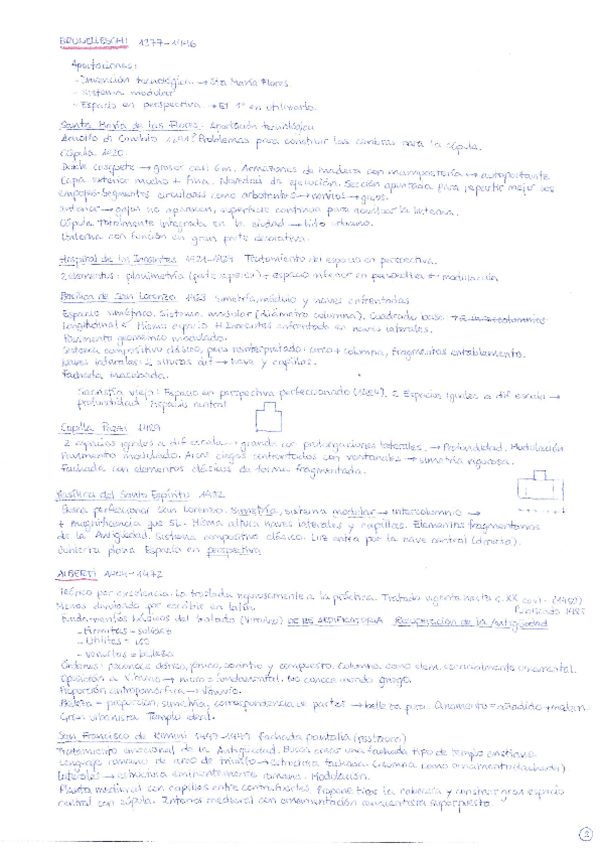 BRUNELLESCHI 1377-1446
Aportaciones:
- Invención tecnológica → Sta María Flores
- Sistema modular
- Espacio en perspectiva → El 1º en utilizarlo.
Santa María de las Flores: Aportación tecnológica
Arnolfo di Cambio Problemas para construir las cimbras para la cúpula.
Cúpula 1420.
Doble casquete → grosor casi 6m. Armazones de madera con mampostería → autoportante
Capa exterior mucho + fina. Novedad de ejecución. Sección apuntada para repartir mejor los
empujes. Segmentos circulares como arbotantes + nervios → gajos.
Interior → gajos no aparecen, superficie continua para la linterna.
Cúpula totalmente integrada en la ciudad → hito urbano.
Linterna con función en gran parte decorativa.
Hospital de los Inocentes 1421-1424 Tratamiento del espacio en perspectiva.
2 elementos: planimetría (parte superior) + espacio interior en perspectiva + modulación
Basílica de San Lorenzo 1423 simetría, módulo y naves enfrentadas
Espacio simétrico. Sistema modular (diámetro columna). Cuadrado base
Longitudinal Mismo espacio H. Inocentes enfrentado en naves laterales.
Pavimento geométrico modulado.
Sistema compositivo clásico, pero reinterpretado: arco + columna, fragmentos entablamento.
Naves laterales: 2 alturas dif → nave y capillas.
Fachada inacabada.
Sacristía vieja: Espacio en perspectiva perfeccionado 2 Espacios iguales a dif escala →
profundidad. Espacio central
Capilla Pazzi 1429
2 espacios iguales a dif escala → grande con prolongaciones laterales. → Profundidad. Modulación
Pavimento modulado. Arcos ciegos confrontados con ventanales → simetría rigurosa.
Fachada con elementos clásicos de forma fragmentada.
Basílica del Santo Espíritu 1432
Quiere perfeccionar San Lorenzo. Simetría, sistema modular → intercolumnio →
+ magnificencia que SL. Misma altura naves laterales y capillas. Elementos fragmentarios
de la Antigüedad. Sistema compositivo clásico. Luz entra por la nave central (directa).
Cubierta plana Espacio en perspectiva
ALBERTI 1404-1472
Teórico por excelencia. Lo traslada rigurosamente a la práctica. Tratado vigente hasta s. XX
Menos divulgado por escribir en latín. Publicado 1485
Fundamentos básicos del tratado (Vitruvio) DE RE AEDIFICATORIA Recuperación de la Antigüedad
- Firmitas = solidez
- Utilitas = uso
- Venustas = belleza
Órdenes: reconoce dórico, jónico, corintio y compuesto. Columna como elem. esencialmente ornamental.
Oposición a Vitruvio → muro = fundamental. No conoce mundo griego.
Proporción antropomórfica → Vitruvio.
Belleza = proporción, simetría, correspondencia de partes → belleza pura. Ornamento = añadido
Gran urbanista Templo ideal.
San Francisco de Rimini Fachada pantalla
Tratamiento emocional de la Antigüedad. Busca crear una fachada tipo de templo cristiano
Lenguaje romano de arco de triunfo → estructura fachada. Columna como ornamento (fachada)
Laterales → estructura eminentemente romana. Modulación.
Planta medieval con capillas entre contrafuertes. Propone tirar la cabecera y construir gran espacio
central con cúpula. Interior medieval con ornamentación superpuesta.
2